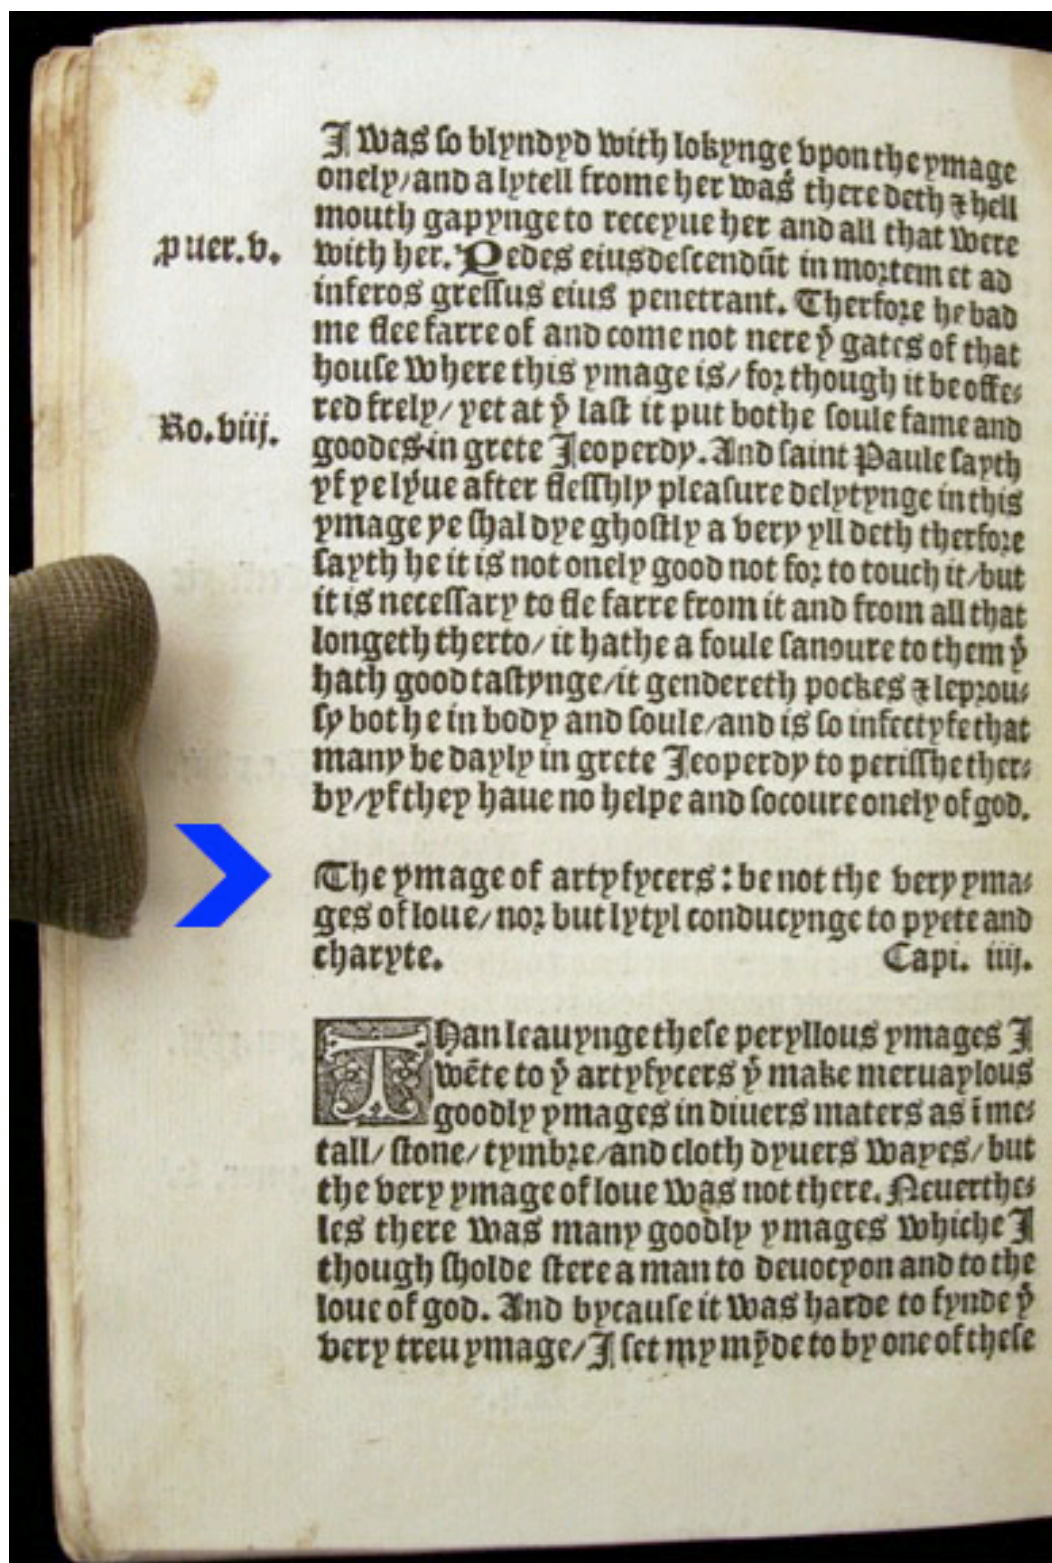 I was so blyndyd with lokynge vpon the ymage
onely/and a lytell frome her was there deth ⁊ hell
mouth gapynge to receyue her and all that were
puer.v.
with her. Pedes eius descendūt in mortem et ad
inferos gressus eius penetrant. Therfore he bad
me flee farre of and come not nere yͤ gates of that
house where this ymage is/for though it be offe⸗
red frely/yet at yͤ last it put bothe soule fame and
Ro.viij.
goodes in grete Jeoperdy. And saint Paule sayth
yf ye lyue after flesshly pleasure delytynge in this
ymage ye shal dye ghostly a very yll deth therfore
sayth he it is not onely good not for to touch it/but
it is necessary to fle farre from it and from all that
longeth therto/it hathe a foule sauoure to them yͭ
hath good tastynge/it gendereth pockes ⁊ leprou⸗
sy bothe in body and soule/and is so infectyfe that
many be dayly in grete Jeoperdy to perisshe ther⸗
by/yf they haue no helpe and socoure onely of god.
The ymage of artyfycers: be not the very yma⸗
ges of loue/nor but lytyl conducynge to pyete and
charyte. Capi. iiij.
THan leauynge these peryllous ymages I
wēte to yͤ artyfycers yͭ make meruaylous
goodly ymages in diuers maters as ī me⸗
tall/stone/tymbre/and cloth dyuers wayes/but
the very ymage of loue was not there. Neuerthe⸗
les there was many goodly ymages whiche I
though sholde stere a man to deuocyon and to the
loue of god. And bycause it was harde to fynde yͤ
very treu ymage/I set my mȳde to by one of these